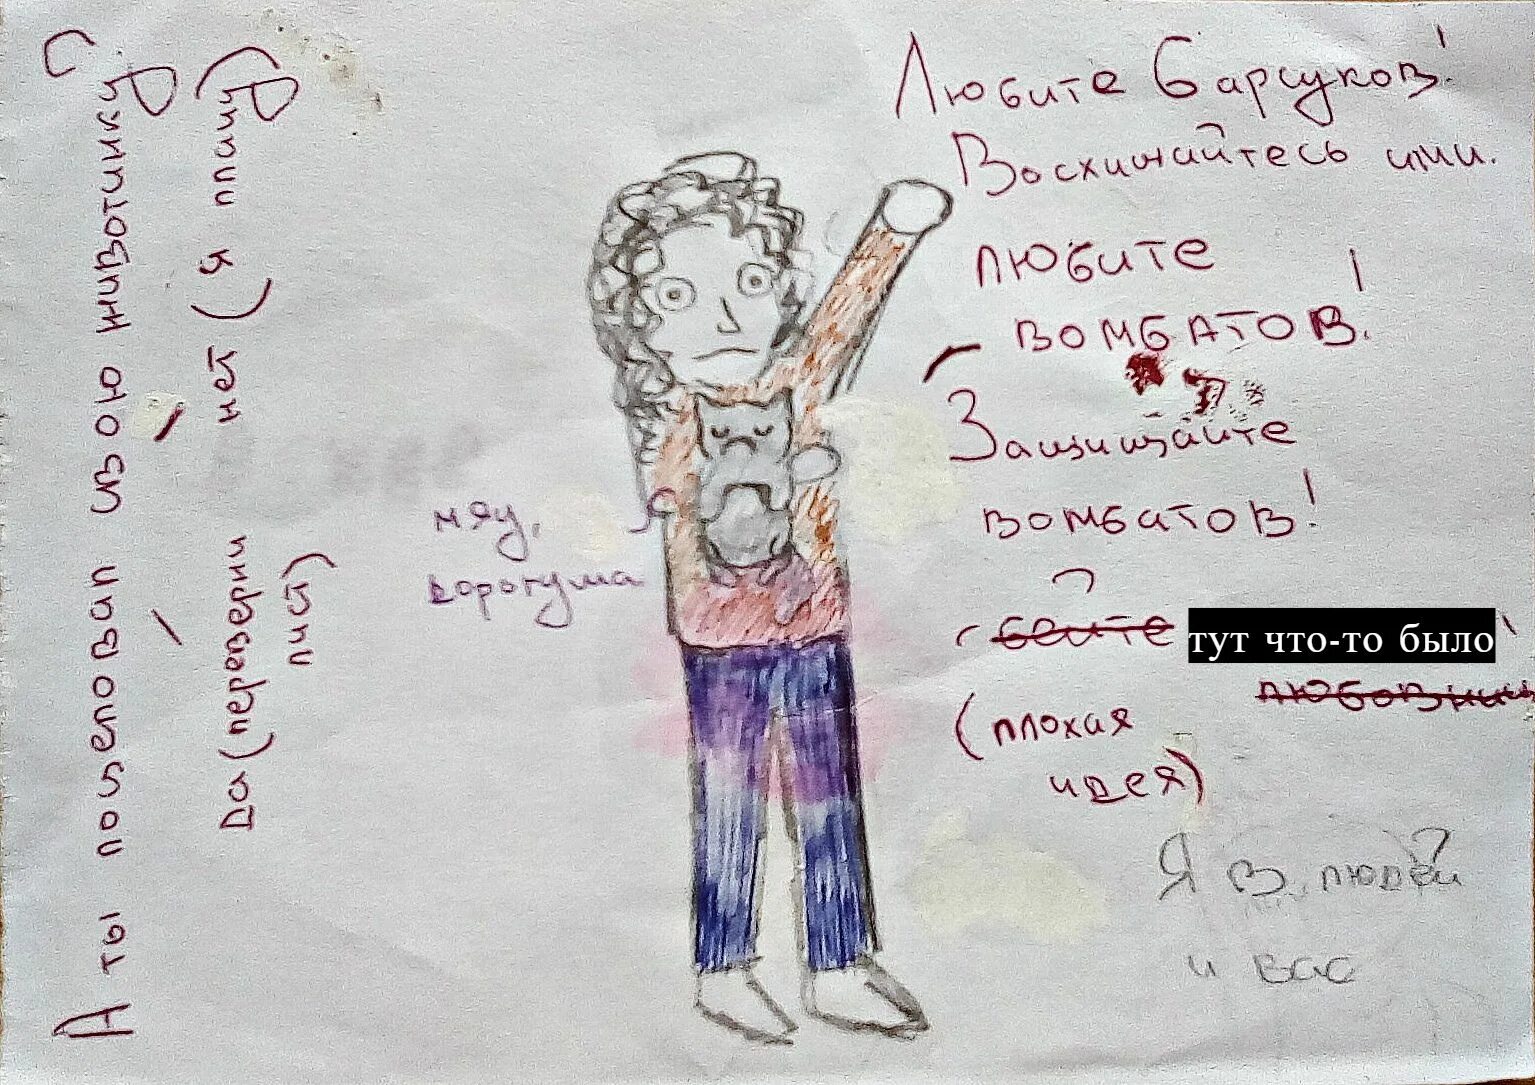 А ты поцеловал свою животинку?
Да (переверни
лист)
нет (я плачу)
мяу,
дорогуша
Любите барсуков!
Восхищайтесь ими.
Любите
вомбатов!
Защищайте
вомбатов!
бейте
тут что-то было
(плохая
идея)
Я в людей
и вас